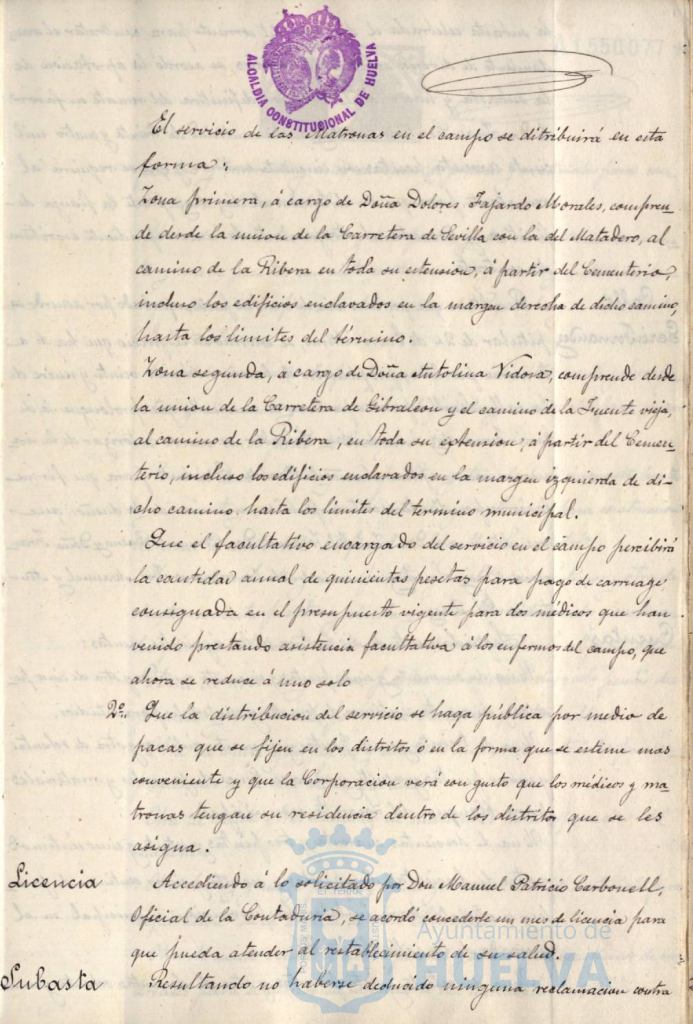 ALCALDIA CONSTITUCIONAL DE HUELVA
1550077
El servicio de las Matronas en el campo se ditribuirá en esta
forma:
Zona primera, á cargo de Doña Dolores Fajardo Morales, compren-
de desde la union de la Carretera de Sevilla con la del Matadero, al
camino de la Ribera en toda su estension, á partir del Cementerio,
incluso los edificios enclavados en la margen derecha de dicho camino,
hasta los limites del término.
Zona segunda, á cargo de Doña Antolina Vidosa, comprende desde
la union de la Carretera de Gibraleon y el camino de la Fuente vieja,
al camino de la Ribera, en toda su extension, á partir del Cemen-
terio, incluso los edificios enclavados en la margen izquierda de di-
cho camino, hasta los limites del termino municipal.
Que el facultativo encargado del servicio en el campo percibirá
la cantidad anual de quinientas pesetas para pago de carruage
consignada en el presupuesto vigente para dos médicos que han
venido prestando asistencia facultativa á los enfermos del campo, que
ahora se reduce á uno solo
2º. Que la distribucion del servicio se haga pública por medio de
pacas que se fijen en los distritos ó en la forma que se estime mas
conveniente y que la Corporacion verá con gusto que los médicos y ma-
tronas tengan su residencia dentro de los distritos que se les
asigna.
Licencia Accediendo á lo solicitado por Don Manuel Patricio Carbonell,
Oficial de la Contaduria, se acordó concederle un mes de licencia para
que pueda atender al restablecimiento de su salud.
Subasta Resultando no haberse deducido ninguna reclamacion contra
Ayuntamiento de
HUELVA